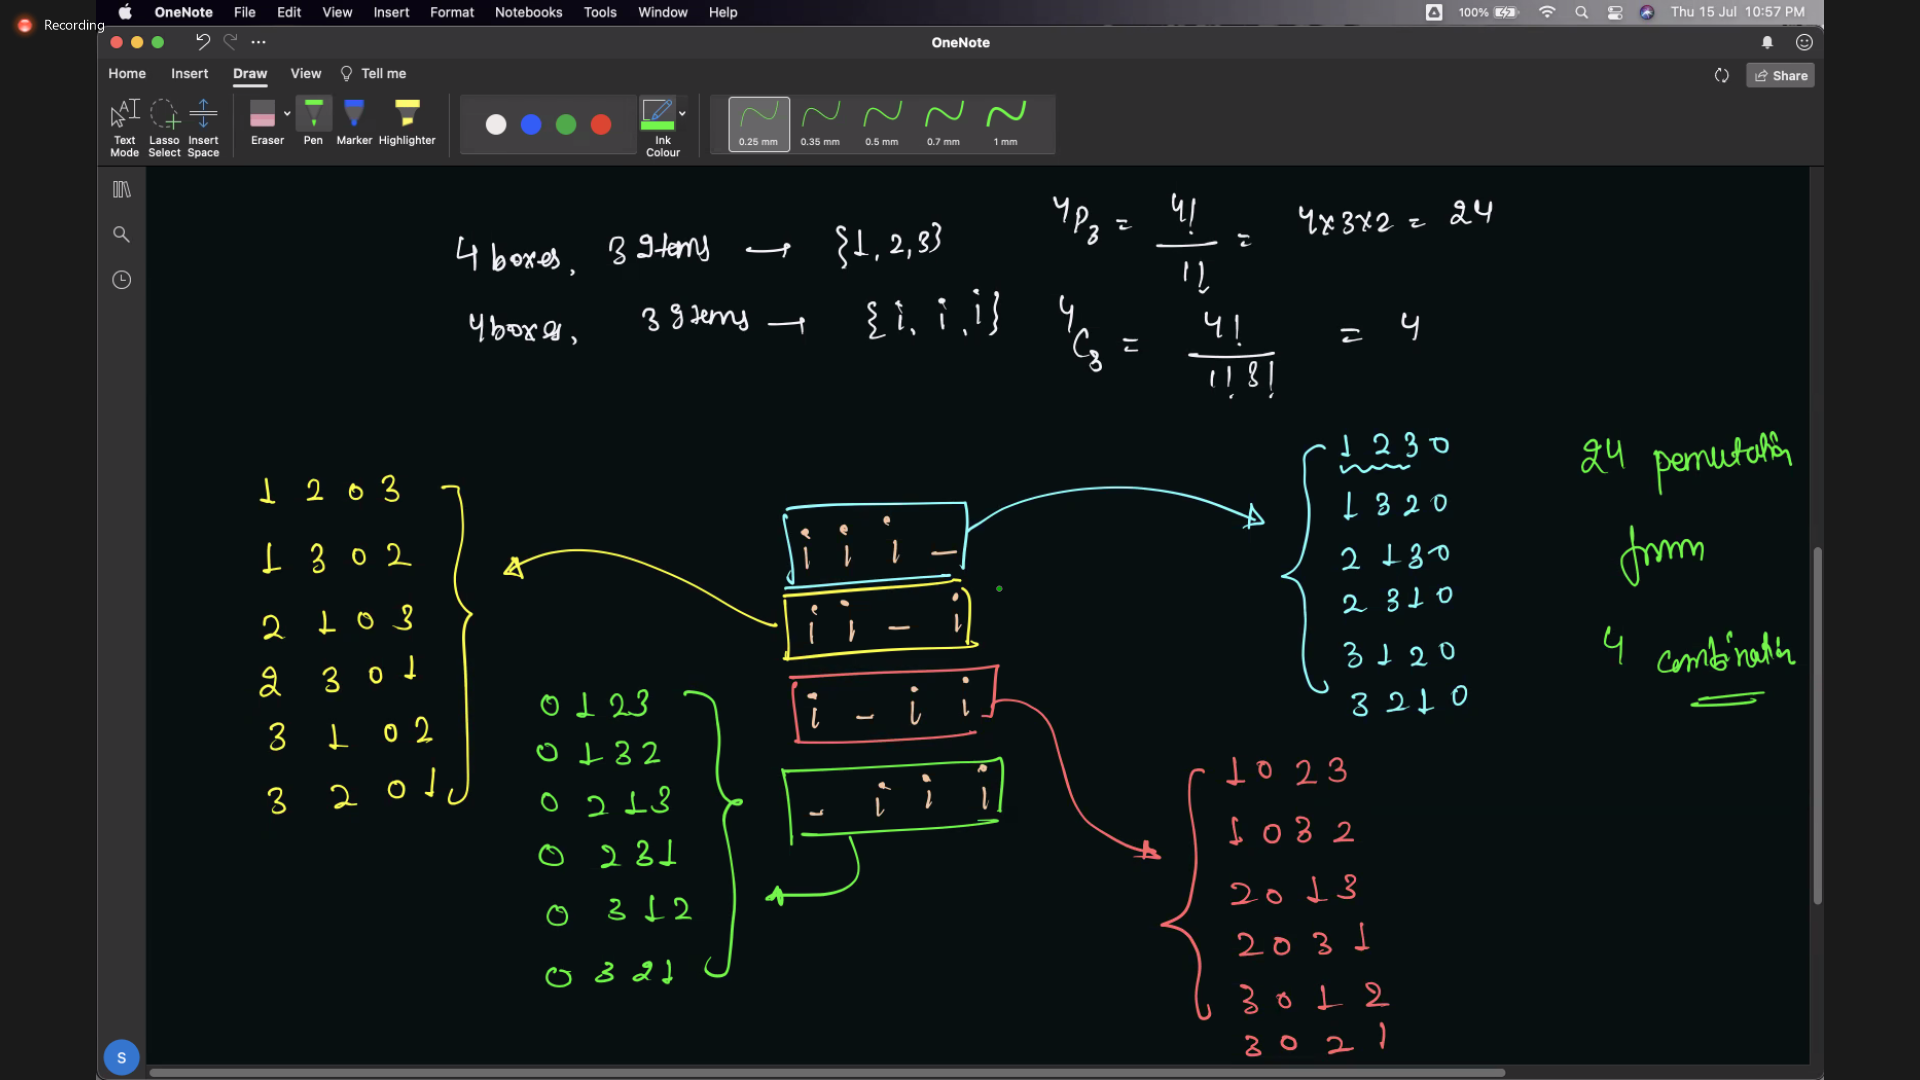 Recording
OneNote File Edit View Insert Format Notebooks Tools Window Help 100% Thu 15 Jul 10:57 PM
OneNote
Home Insert Draw View Tell me Share
Text Mode Lasso Select Insert Space Eraser Pen Marker Highlighter Ink Colour 0.25 mm 0.35 mm 0.5 mm 0.7 mm 1 mm
4 boxes, 3 Items → {1, 2, 3} 4P3 = 4!/1! = 4x3x2 = 24
4 boxes, 3 Items → {i, i, i} 4C3 = 4!/1!3! = 4
1 2 0 3
1 3 0 2
2 1 0 3
2 3 0 1
3 1 0 2
3 2 0 1
0 1 2 3
0 1 3 2
0 2 1 3
0 2 3 1
0 3 1 2
0 3 2 1
i i i -
i i - i
i - i i
- i i i
1 2 3 0
1 3 2 0
2 1 3 0
2 3 1 0
3 1 2 0
3 2 1 0
1 0 2 3
1 0 3 2
2 0 1 3
2 0 3 1
3 0 1 2
3 0 2 1
24 permutation
from
4 combination
S